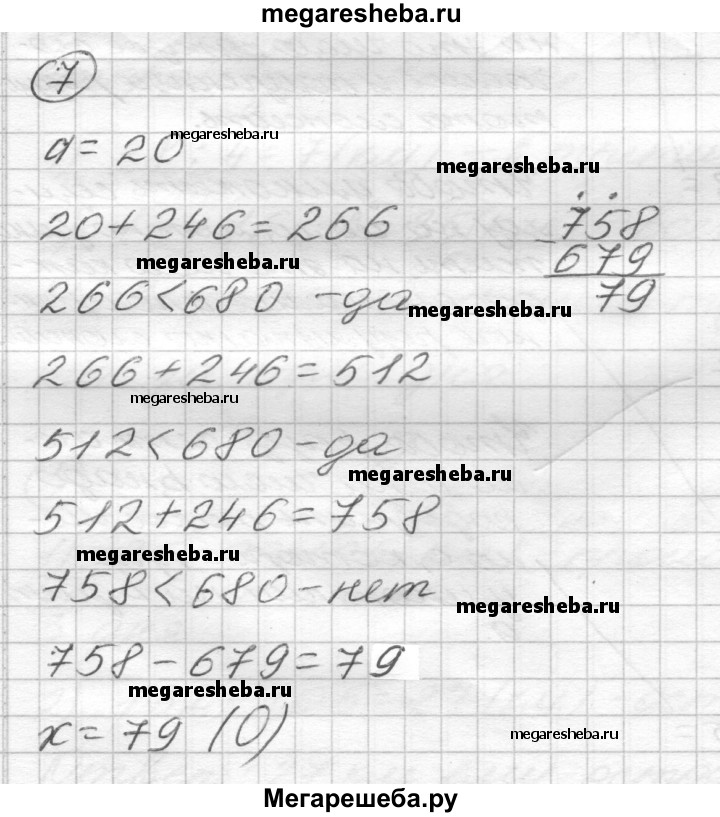 megaresheba.ru
7
a = 20
megaresheba.ru
megaresheba.ru
20 + 246 = 266
758
- 679
79
megaresheba.ru
266 < 680 - да
megaresheba.ru
266 + 246 = 512
megaresheba.ru
512 < 680 - да
megaresheba.ru
512 + 246 = 758
megaresheba.ru
758 < 680 - нет
megaresheba.ru
758 - 679 = 79
megaresheba.ru
x = 79 (О)
megaresheba.ru
Мегарешеба.ру